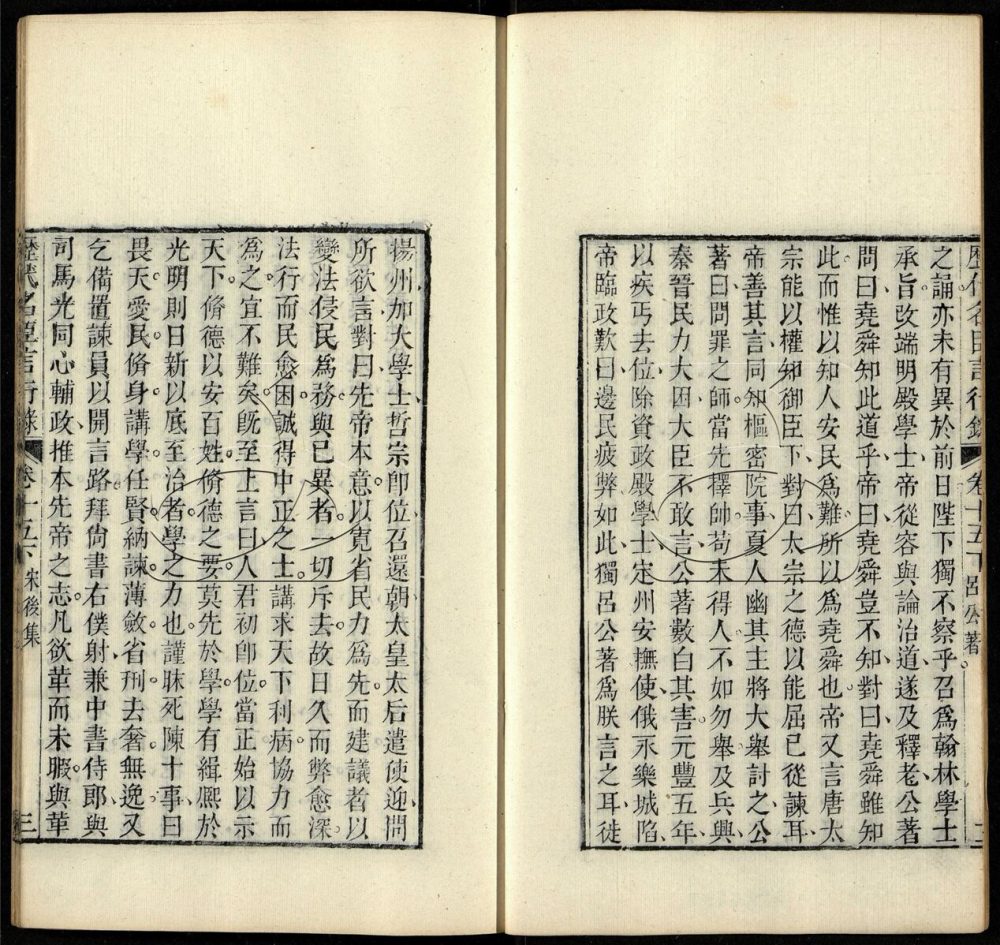 歷代名臣言行錄 卷十五下 呂公著 二
之誦亦未有異於前日陛下獨不察乎召爲翰林學士
承旨改端明殿學士帝從容與論治道遂及釋老公著
問曰堯舜知此道乎帝曰堯舜豈不知對曰堯舜雖知
此而惟以知人安民爲難所以爲堯舜也帝又言唐太
宗能以權知御臣下對曰太宗之德以能屈已從諫耳
帝善其言同知樞密院事夏人幽其主將大舉討之公
著曰問罪之師當先擇帥苟未得人不如勿舉及兵興
秦晉民力大困大臣不敢言公著數白其害元豐五年
以疾丐去位除資政殿學士定州安撫使俄永樂城陷
帝臨政歎曰邊民疲弊如此獨呂公著爲朕言之耳徒
揚州加大學士哲宗卽位召還朝太皇太后遣使迎問
所欲言對曰先帝本意以寬省民力爲先而建議者以
變法侵民爲務與已異者一切斥去故日久而弊愈深
法行而民愈困誠得中正之士講求天下利病協力而
爲之宜不難矣旣至上言曰人君初卽位當正始以示
天下脩德以安百姓脩德之要莫先於學學有緝熈於
光明則日新以底至治者學之力也謹昧死陳十事曰
畏天愛民脩身講學任賢納諫薄斂省刑去奢無逸又
乞備置諫員以開言路拜尙書右僕射兼中書侍郎與
司馬光同心輔政推本先帝之志凡欲革而未暇與革
歷代名臣言行錄 卷十五下 宋後集 三